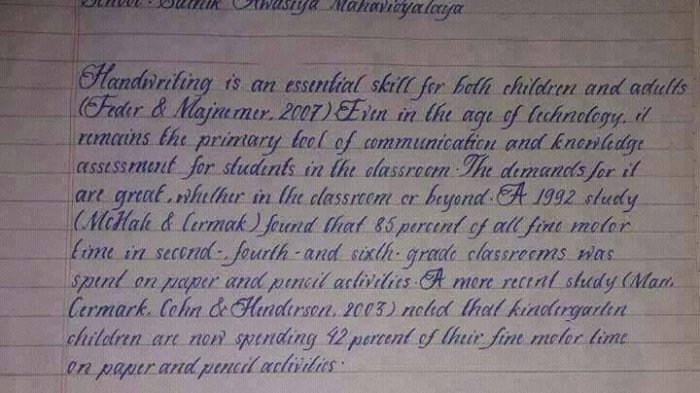 School: Sainik Awasiya Mahavidyalaya
Handwriting is an essential skill for both children and adults
(Feder & Majnemer, 2007) Even in the age of technology, it
remains the primary tool of communication and knowledge
assessment for students in the classroom. The demands for it
are great, whether in the classroom or beyond. A 1992 study
(McHale & Cermak) found that 85 percent of all fine motor
time in second-, fourth- and sixth- grade classrooms was
spent on paper and pencil activities. A more recent study (Marr,
Cermark, Cohn & Henderson, 2003) noted that kindergarten
children are now spending 42 percent of their fine motor time
on paper and pencil activities.